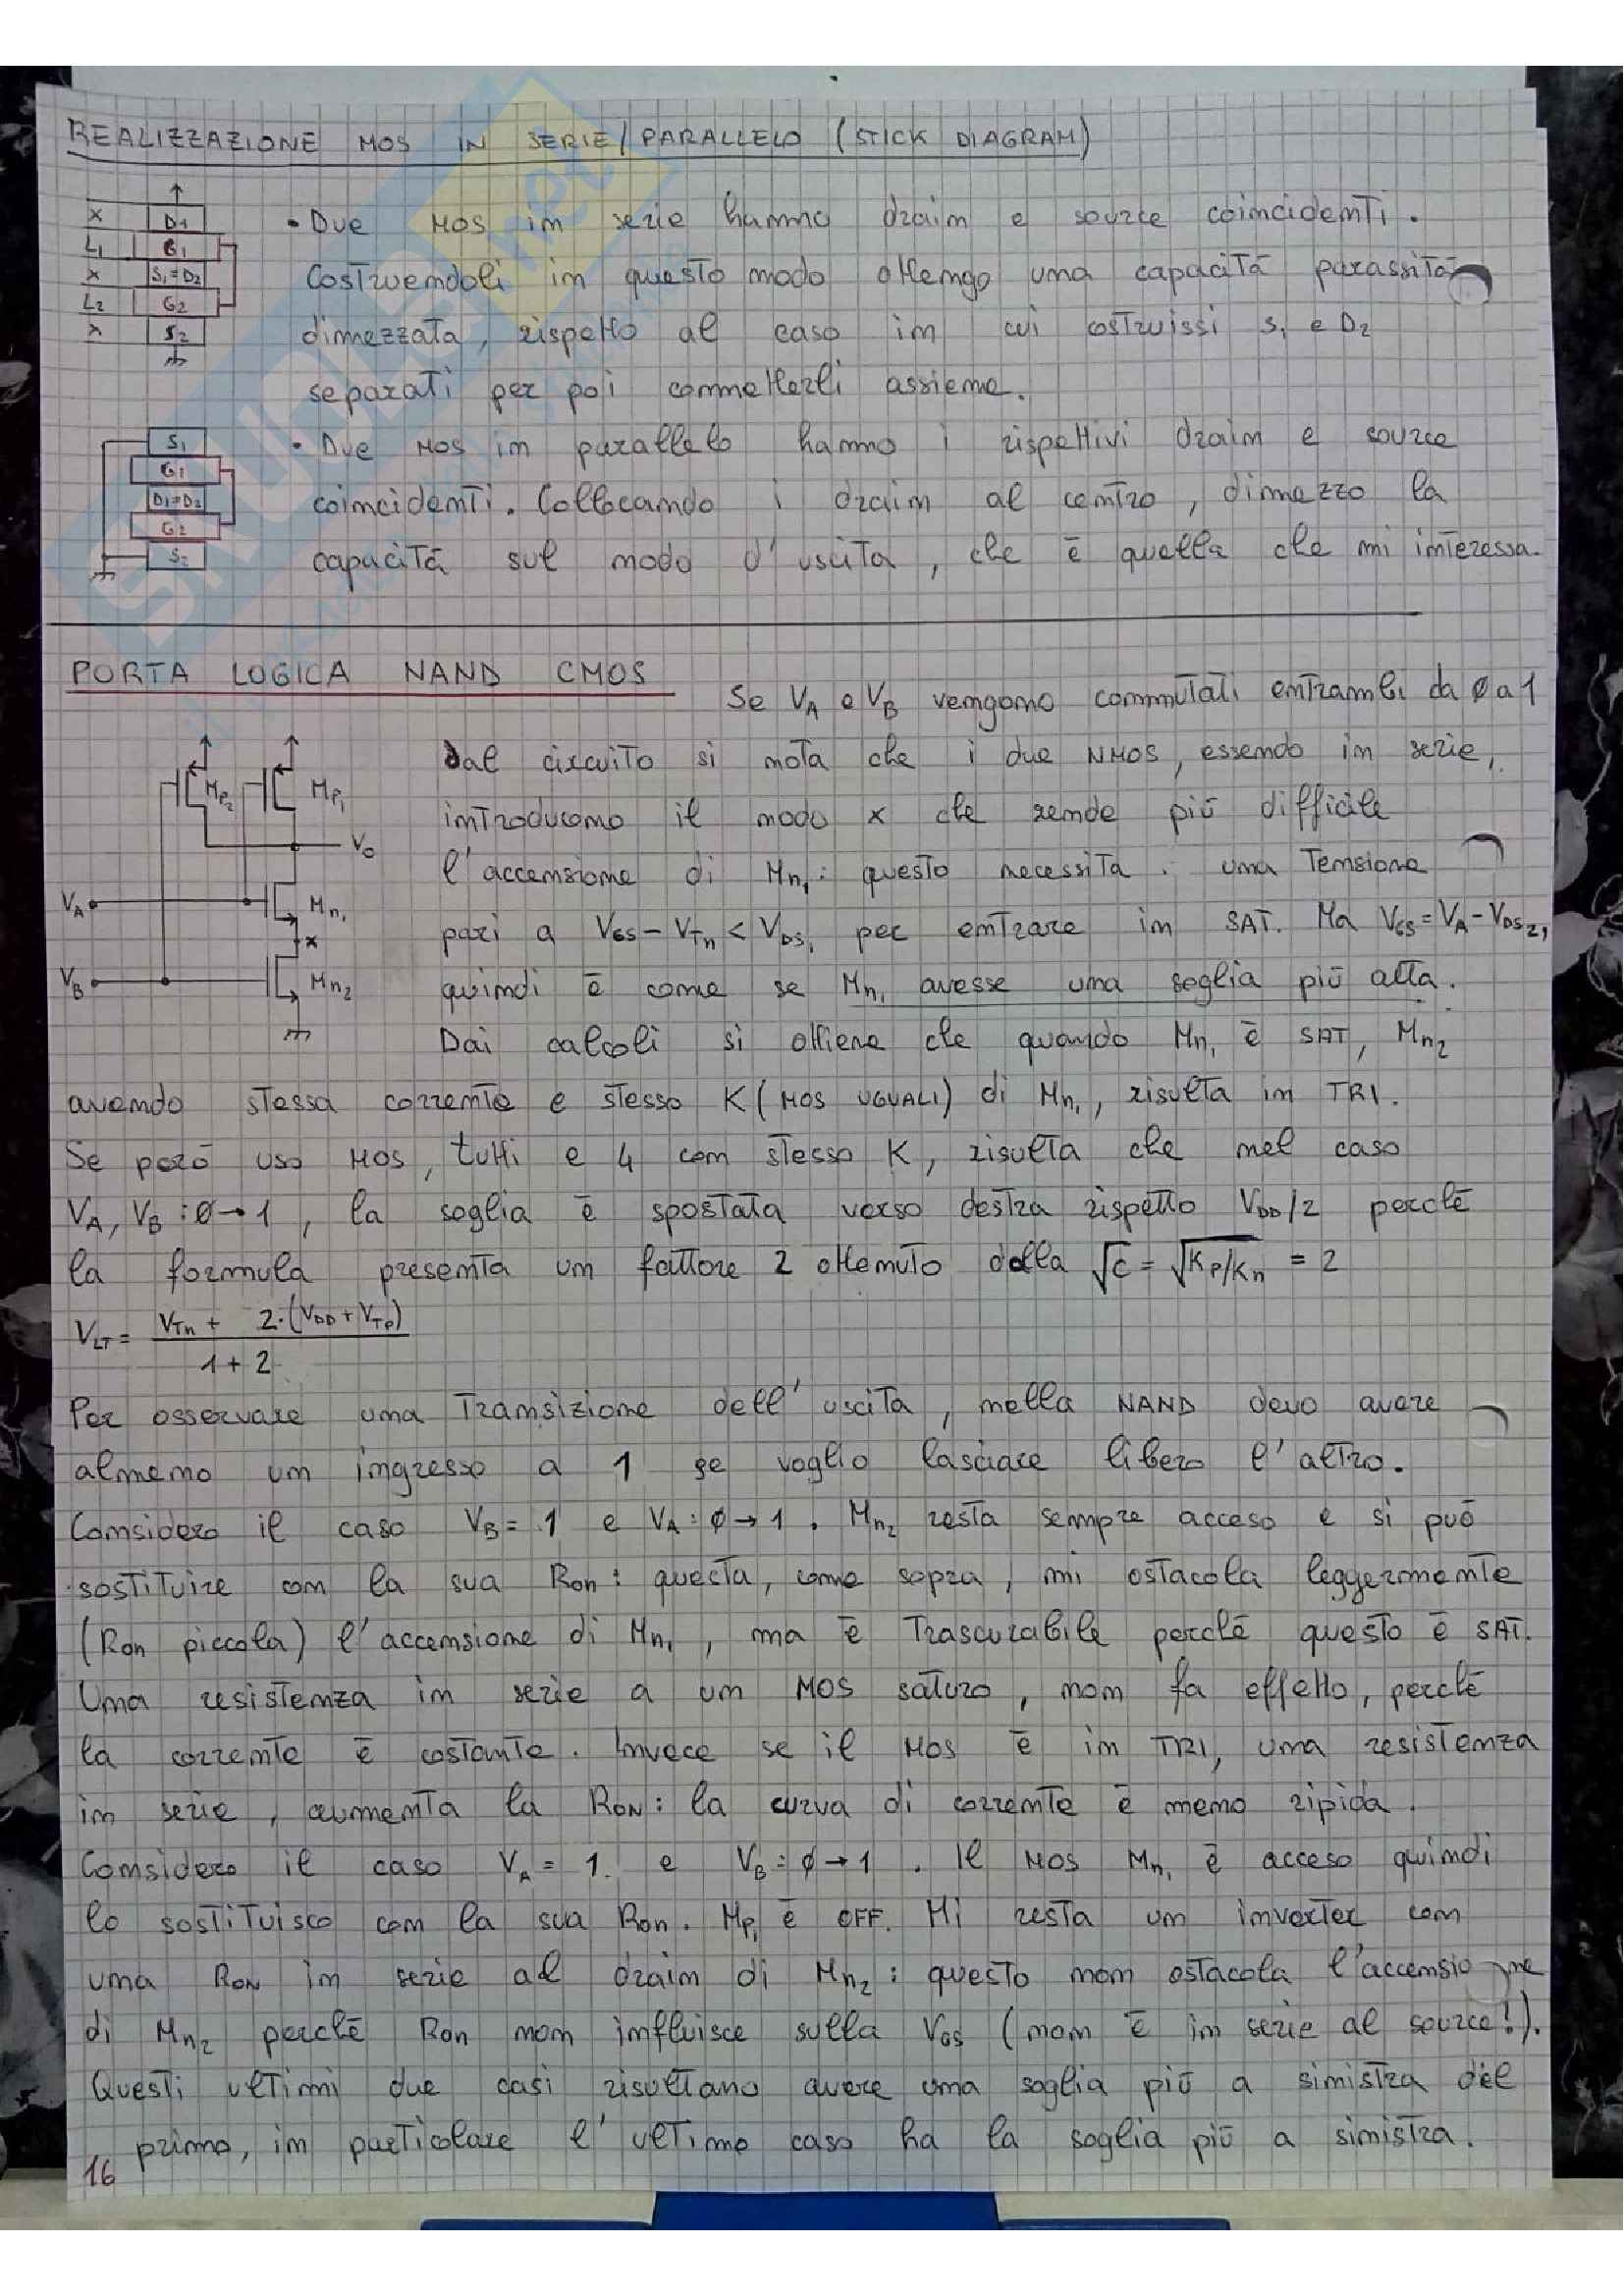 REALIZZAZIONE MOS IN SERIE/PARALLELO (STICK DIAGRAM)
X D1
L1 G1
X S1=D2
L2 G2
X S2
• Due MOS in serie hanno drain e source coincidenti.
Costruendoli in questo modo ottengo una capacità parassita
dimezzata, rispetto al caso in cui costruissi S1 e D2
separati per poi connetterli assieme.
S1
G1
D1=D2
G2
S2
• Due MOS in parallelo hanno i rispettivi drain e source
coincidenti. Collocando i drain al centro, dimezzo la
capacità sul nodo d'uscita, che è quella che mi interessa.
PORTA LOGICA NAND CMOS
Se VA e VB vengono commutati entrambi da Ø a 1
Mp2 Mp1
Vo
VA Mn1
x
VB Mn2
Dal circuito si nota che i due NMOS, essendo in serie,
introducono il nodo x che rende più difficile
l'accensione di Mn1: questo necessita . una tensione
pari a VGS - VTn < VDS1 per entrare in SAT. Ma VGS = VA - VDS2,
quindi è come se Mn1 avesse una soglia più alta.
Dai calcoli si ottiene che quando Mn1 è SAT, Mn2
avendo stessa corrente e stesso K (MOS UGUALI) di Mn1, risulta in TRI.
Se però uso MOS, tutti e 4 con stesso K, risulta che nel caso
VA, VB : Ø→1, la soglia è spostata verso destra rispetto VDD/2 perché
la formula presenta un fattore 2 ottenuto dalla √C = √Kp/Kn = 2
VLT = VTn + 2·(VDD + VTp)
1 + 2
Per osservare una transizione dell'uscita, nella NAND devo avere
almeno un ingresso a 1 se voglio lasciare libero l'altro.
Considero il caso VB = 1 e VA : Ø→1. Mn2 resta sempre acceso e si può
sostituire con la sua Ron: questa, come sopra, mi ostacola leggermente
(Ron piccola) l'accensione di Mn1, ma è trascurabile perché questo è SAT.
Una resistenza in serie a un MOS saturo, non fa effetto, perché
la corrente è costante. Invece se il MOS è in TRI, una resistenza
in serie, aumenta la RON: la curva di corrente è meno ripida.
Considero il caso VA = 1. e VB : Ø→1. Il MOS Mn1 è acceso quindi
lo sostituisco con la sua Ron. Mp1 è OFF. Mi resta un inverter con
una RON in serie al drain di Mn2: questo non ostacola l'accensione
di Mn2 perché Ron non influisce sulla VGS (non è in serie al source!).
Questi ultimi due casi risultano avere una soglia più a sinistra del
primo, in particolare l'ultimo caso ha la soglia più a sinistra.
16